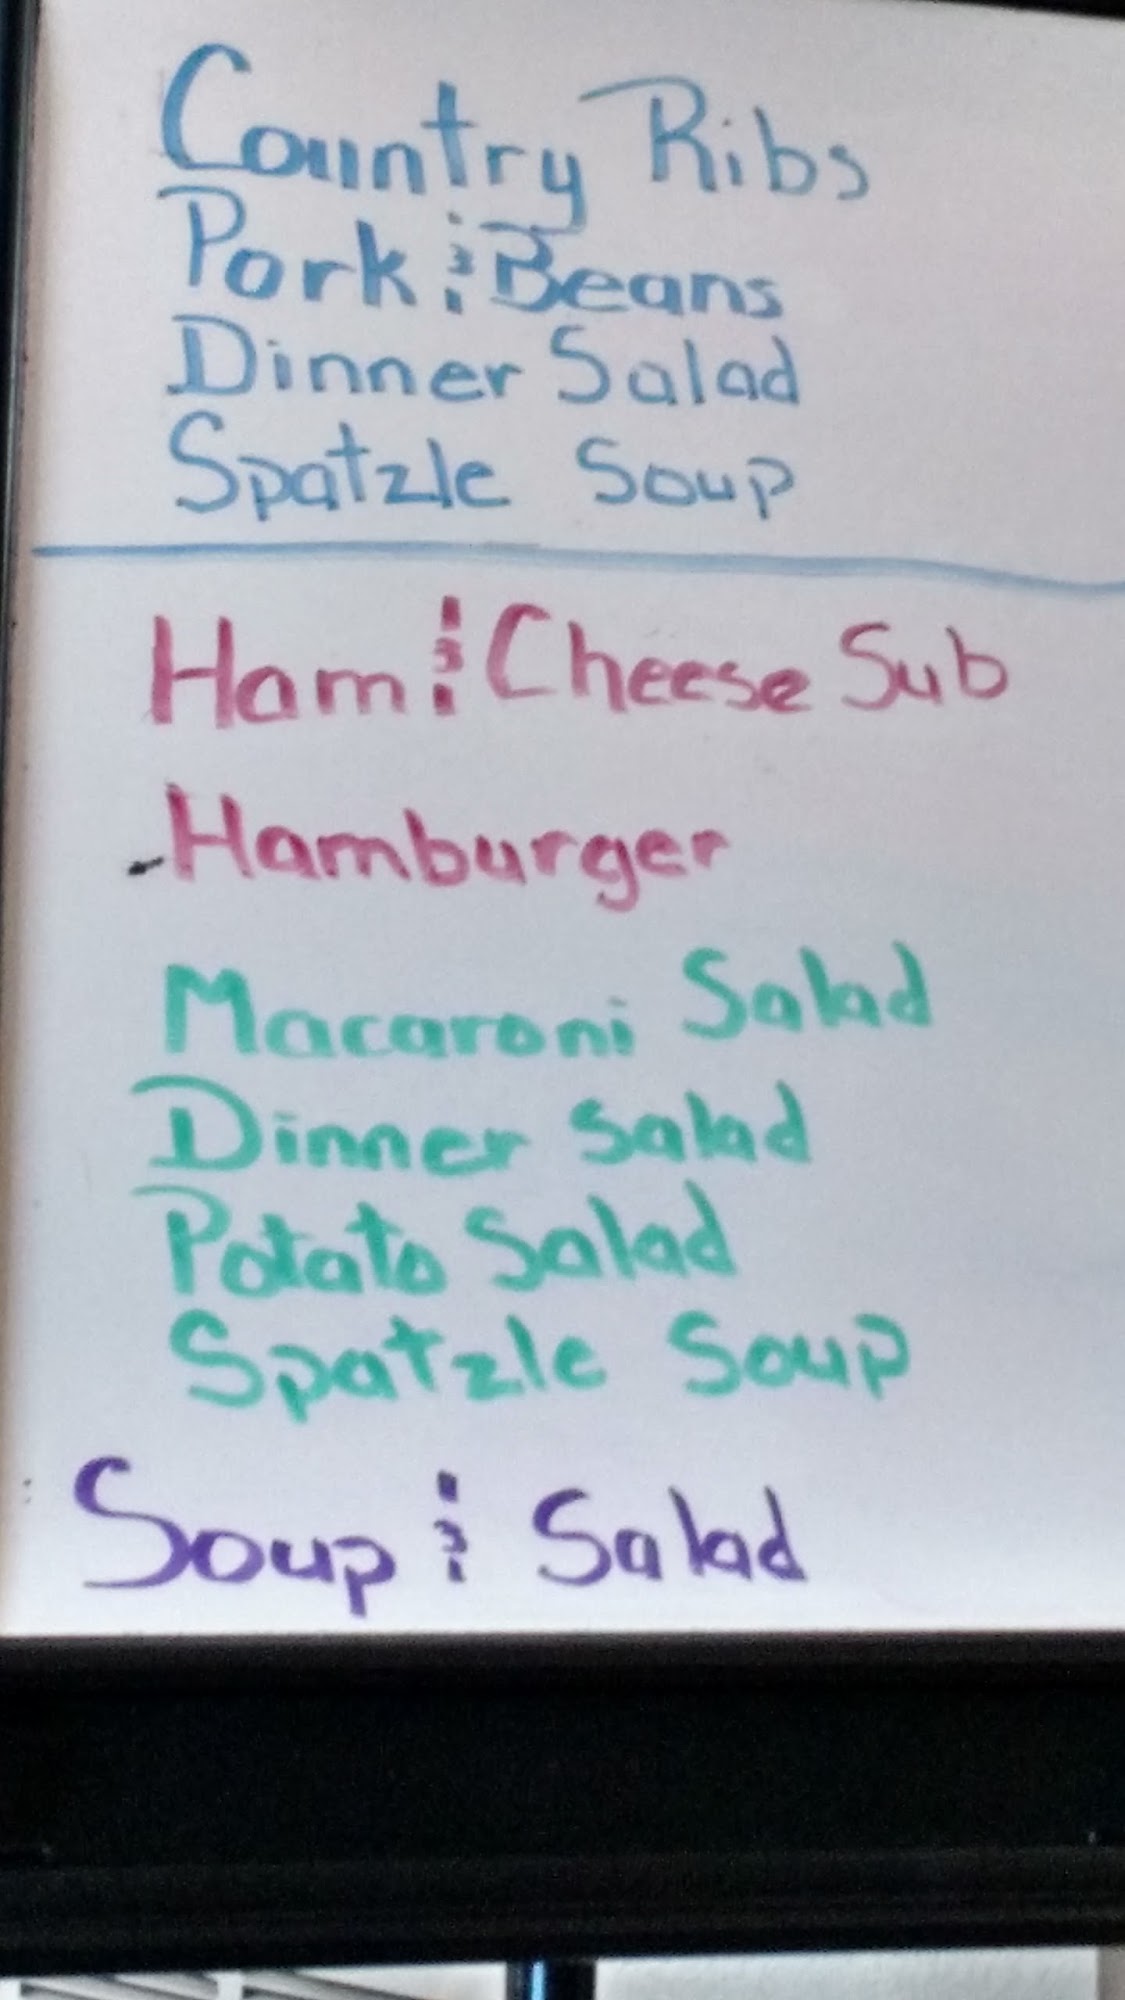 Country Ribs
Pork & Beans
Dinner Salad
Spatzle Soup
Ham & Cheese Sub
Hamburger
Macaroni Salad
Dinner Salad
Potato Salad
Spatzle Soup
Soup & Salad